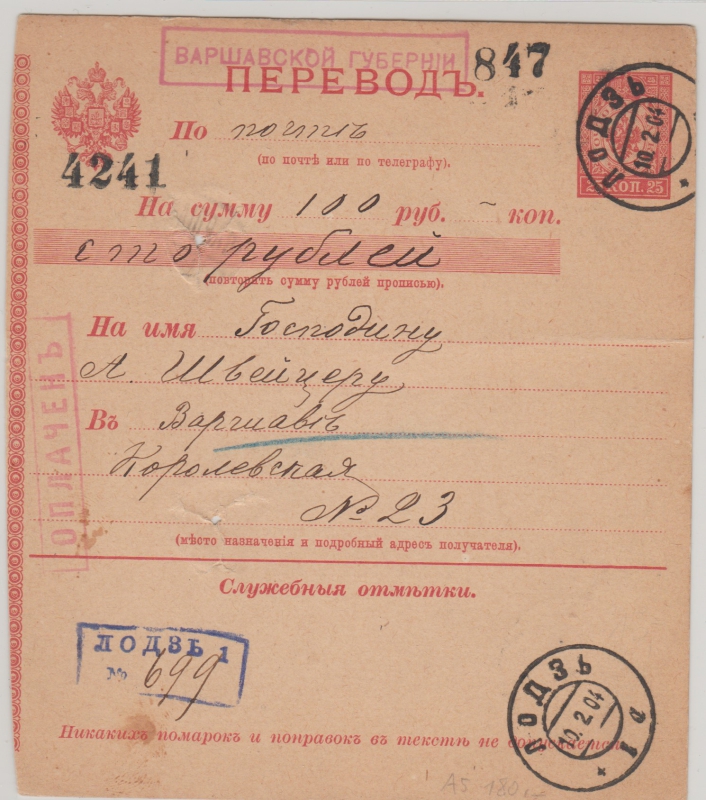 ВАРШАВСКОЙ ГУБЕРНІИ
847
ПЕРЕВОДЪ.
ЛОДЗЬ
10.2.04
КОП. 25
По почтѣ
(по почтѣ или по телеграфу).
4241
На сумму 100 руб. – коп.
сто рублей
(повторить сумму рублей прописью).
На имя Господину
А. Швейцеру
Въ Варшавѣ
Королевская
№ 23
(мѣсто назначенія и подробный адресъ получателя).
ОПЛАЧЕНЪ
Служебныя отмѣтки.
ЛОДЗЬ 1
№ 699
ЛОДЗЬ 1
10.2.04
Никакихъ помарокъ и поправокъ въ текстѣ не допускается.
A5 180,–